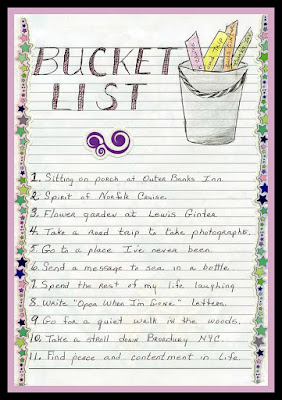 BUCKET
LIST
1. Sitting on porch at Outer Banks Inn.
2. Spirit of Norfolk Cruise.
3. Flower garden at Lewis Ginter
4. Take a road trip to take photographs.
5. Go to a place I've never been.
6. Send a message to sea in a bottle.
7. Spend the rest of my life laughing.
8. Write "Open When I'm Gone" letters.
9. Go for a quiet walk in the woods.
10. Take a stroll down Broadway NYC.
11. Find peace and contentment in life.